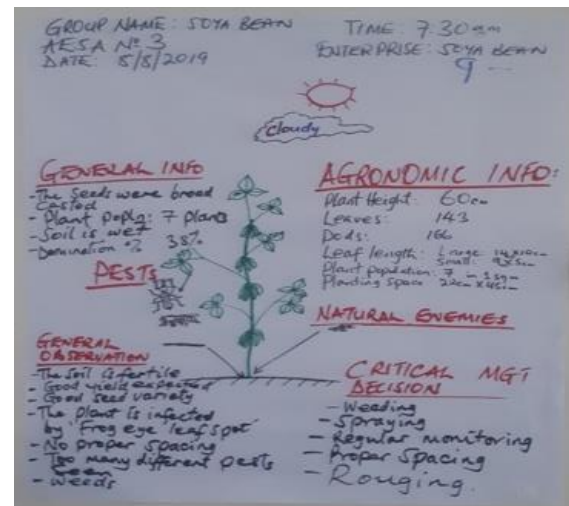 GROUP NAME: SOYA BEAN
AESA Nº 3
DATE: 8/8/2019
TIME: 7.30am
ENTERPRISE: SOYA BEAN
9
Cloudy
GENERAL INFO
- The seeds were broad
Casted
- Plant popln: 7 plants
- Soil is wet
- Germination % 38%
PESTS
GENERAL
OBSERVATION
- The soil is fertile
- Good yield expected
- Good seed variety
- The plant is infected
by "Frog eye leaf spot"
- No proper spacing
- Too many different pests
seen
- Weeds
AGRONOMIC INFO:
Plant Height: 60cm
Leaves: 143
Pods: 166
Leaf length: Large:
Small:
Plant population: 7 in 1sqm
Planting space 22cm x 45cm
NATURAL ENEMIES
CRITICAL MGT
DECISION
- Weeding
- Spraying
- Regular monitoring
- Proper Spacing
- Rouging.